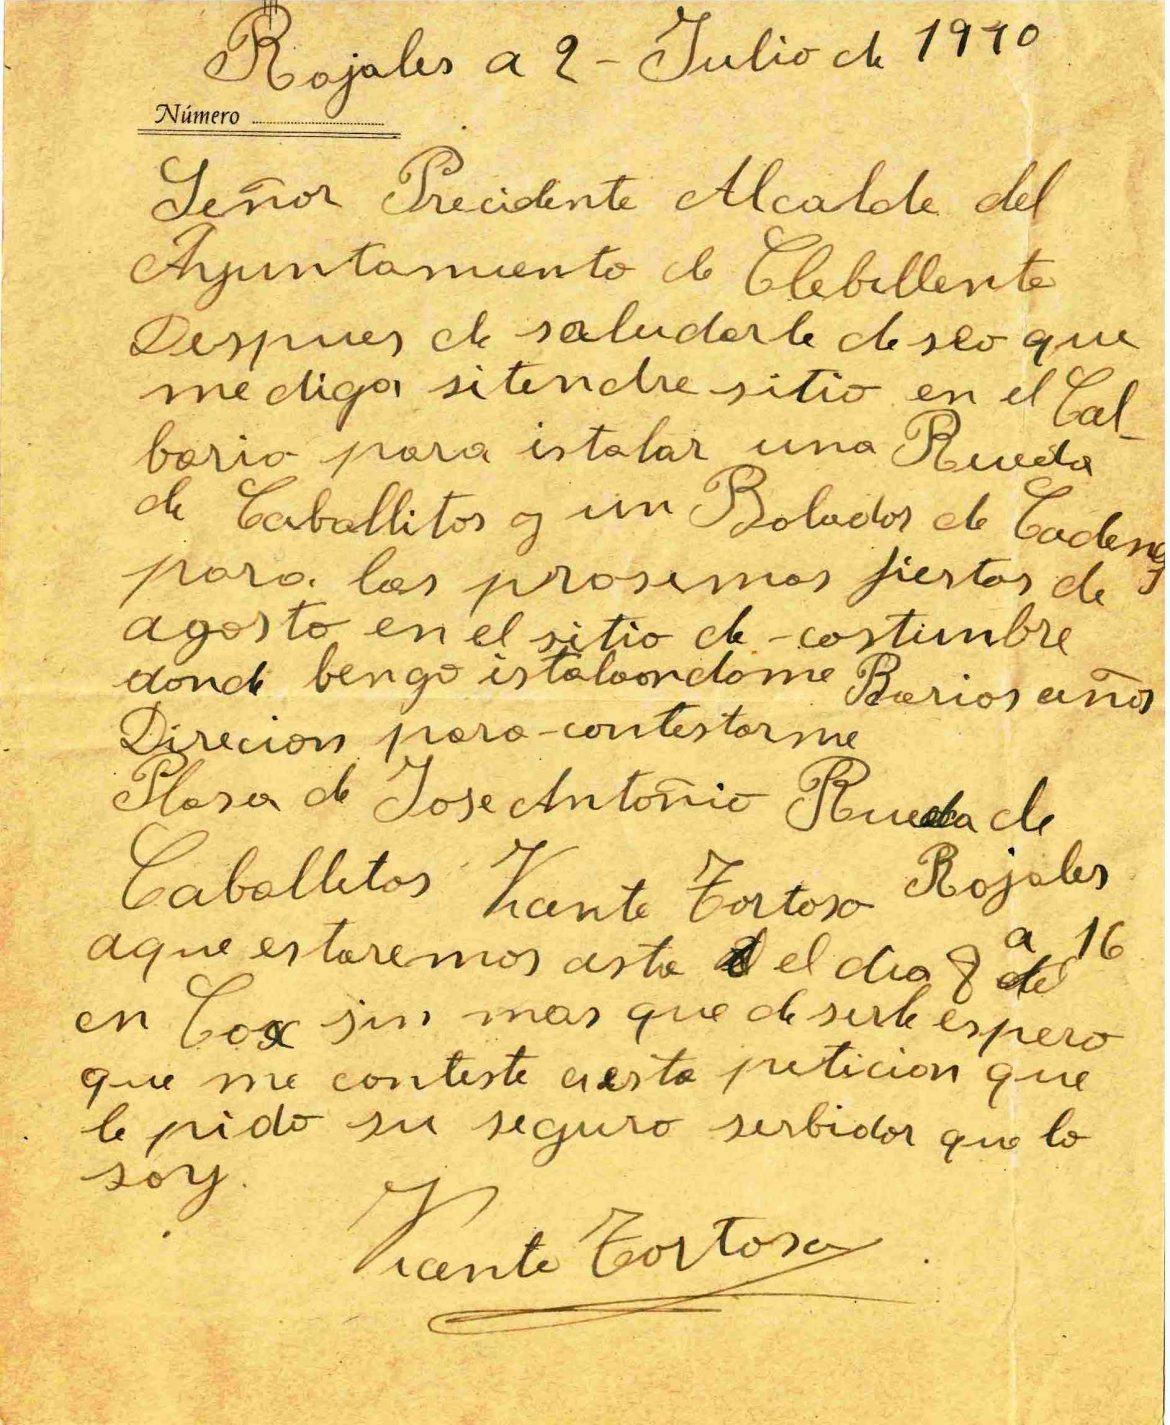 Rojales a 2 - Julio de 1940
Número
Señor Precidente Alcalde del
Ayuntamiento de Clebillente
Despues de saludarle deseo que
me diga si tendre sitio en el Cal-
bario para istalar una Rueda
de Caballitos y un Bolador de Cadenas
para las prosimas fiestas de
agosto en el sitio de costumbre
donde bengo istalaondome Barios años
Direcion para contestarme
Plasa de Jose Antoñio Rueda de
Caballitos Vicente Tortosa Rojales
aque estaremos asta el dia 8 a 16
en Cox sin mas que desirle espero
que me conteste a esta peticion que
le pido su seguro serbidor que lo
soy.
Vicente Tortosa